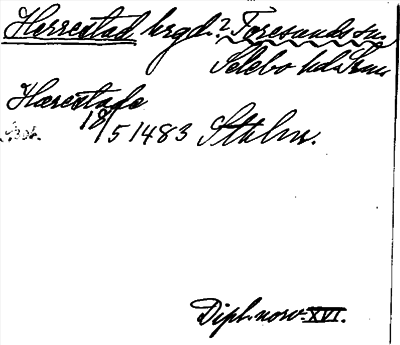 Herrestad hrgd.? Toresunds sn.
Selebo hd. Srm
Hærestade
18/5 1483 Sthlm.
Dipl. norv. XVI.